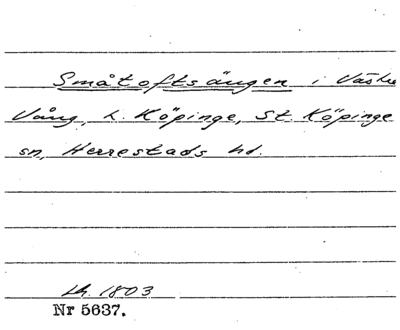 Småtoftsängen i Västra
Vång, L. Köpinge, St. Köpinge
sn, Herrestads hd.
Lh. 1803
Nr 5637.